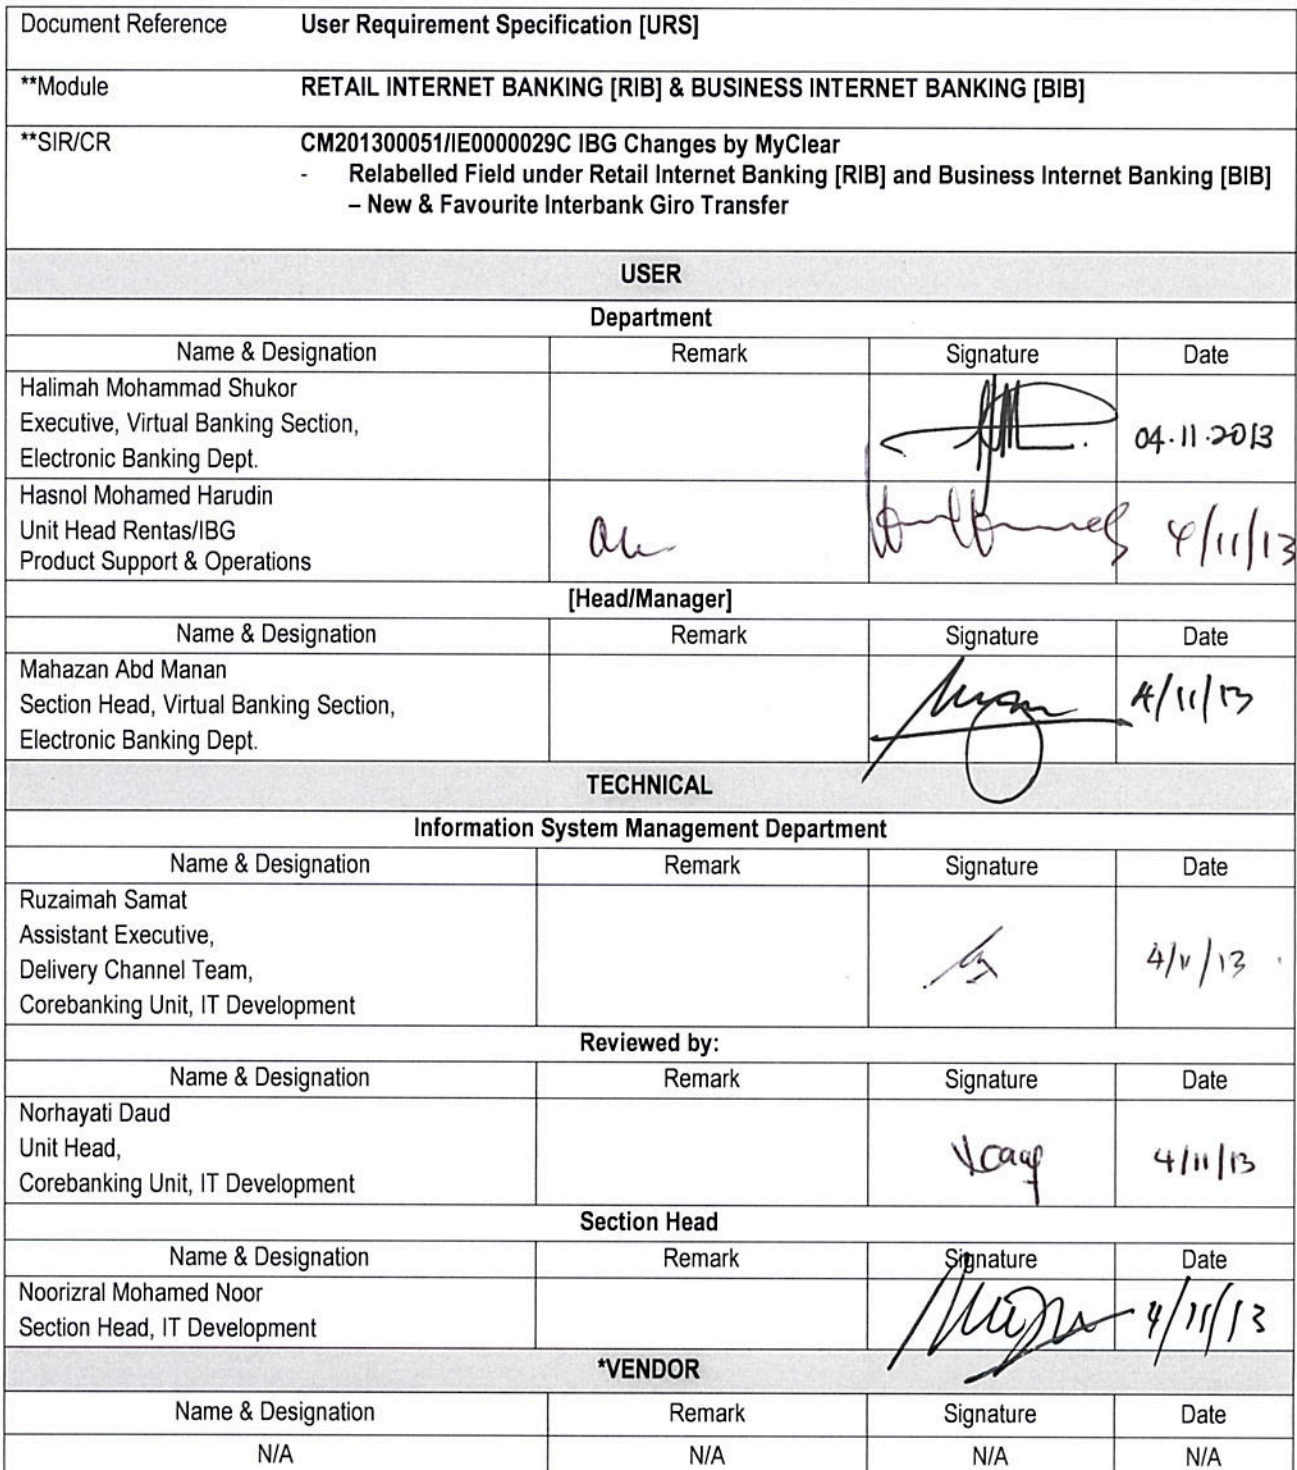 Document Reference User Requirement Specification [URS]
**Module RETAIL INTERNET BANKING [RIB] & BUSINESS INTERNET BANKING [BIB]
**SIR/CR CM201300051/IE0000029C IBG Changes by MyClear
- Relabelled Field under Retail Internet Banking [RIB] and Business Internet Banking [BIB]
– New & Favourite Interbank Giro Transfer
USER
Department
Name & Designation Remark Signature Date
Halimah Mohammad Shukor
Executive, Virtual Banking Section, 04.11.2013
Electronic Banking Dept.
Hasnol Mohamed Harudin
Unit Head Rentas/IBG 4/11/13
Product Support & Operations
[Head/Manager]
Name & Designation Remark Signature Date
Mahazan Abd Manan
Section Head, Virtual Banking Section, 4/11/13
Electronic Banking Dept.
TECHNICAL
Information System Management Department
Name & Designation Remark Signature Date
Ruzaimah Samat
Assistant Executive,
Delivery Channel Team, 4/11/13
Corebanking Unit, IT Development
Reviewed by:
Name & Designation Remark Signature Date
Norhayati Daud
Unit Head, 4/11/13
Corebanking Unit, IT Development
Section Head
Name & Designation Remark Signature Date
Noorizral Mohamed Noor
Section Head, IT Development 4/11/13
*VENDOR
Name & Designation Remark Signature Date
N/A N/A N/A N/A